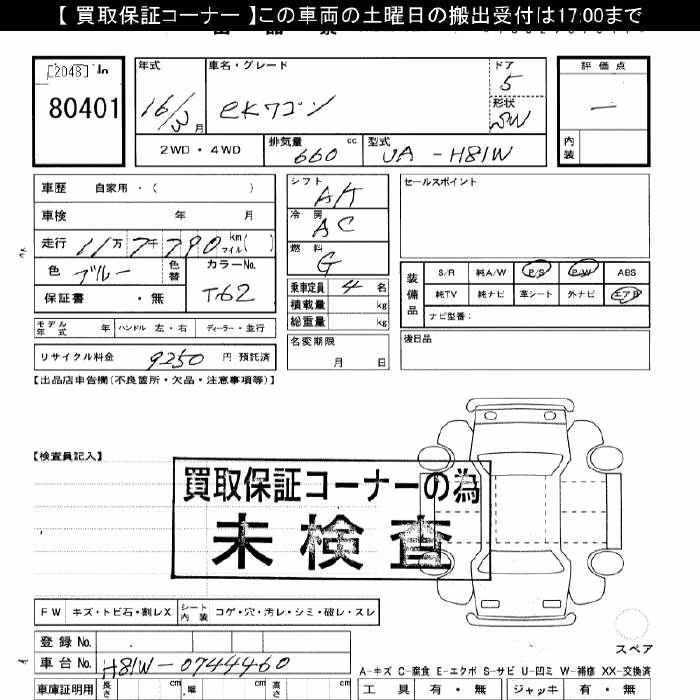 【 買取保証コーナー 】この車両の土曜日の搬出受付は17:00まで
[2048] No
80401
年式 車名・グレード ドア 評価点
16/3月 eKワゴン 5 —
形状 SW
2WD・4WD 排気量 660 cc 型式 UA-H81W 内装
車歴 自家用・( )
車検 年 月
走行 11万7千790 km マイル( )
色 ブルー 色替 カラーNo. T62
保証書 ・無
シフト AT
冷房 AC
燃料 G
乗車定員 4 名
積載量 kg
総重量 kg
セールスポイント
装備品 S/R 純A/W P/S P/W ABS
純TV 純ナビ 革シート 外ナビ エアB
ナビ型番:
モデル年式 年 ハンドル 左・右 ディーラー・並行
名変期限 月 日
後日品
リサイクル料金 9250 円 預託済
【出品店申告欄(不良箇所・欠品・注意事項等)】
【検査員記入】
買取保証コーナーの為
未検査
FW キズ・トビ石・割レX シート内装 コゲ・穴・汚レ・シミ・破レ・スレ
スペア
登録 No.
車台 No. H81W-0744460
A-キズ C-腐食 E-エクボ S-サビ U-凹ミ W-補修 XX-交換済
車庫証明用 長さ cm 幅 cm 高さ cm 工具 有・無 ジャッキ 有・無